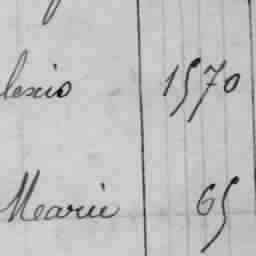 lexio 1570
Marie 65